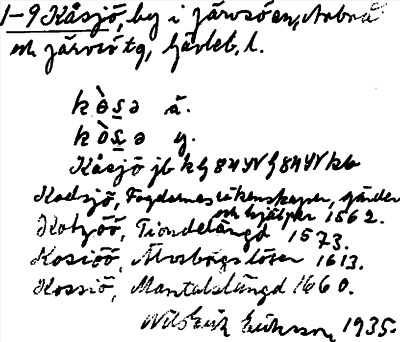 1-9 Kåsjö, by i Järvsö sn, Norra
och Järvsö tg, Gävleb. l.
kòs̲ə ä.
kòs̲ə y.
Kåsjö jb
Kodsjö, Fogdernes räkenskaper, gärder
och hjälper 1562.
Kotzöö, Tiondelängd 1573.
Kosiöö, Älvsborgs lösen 1613.
Kossiö, Mantalslängd 1660.
Nils Erik Eriksson, 1935.